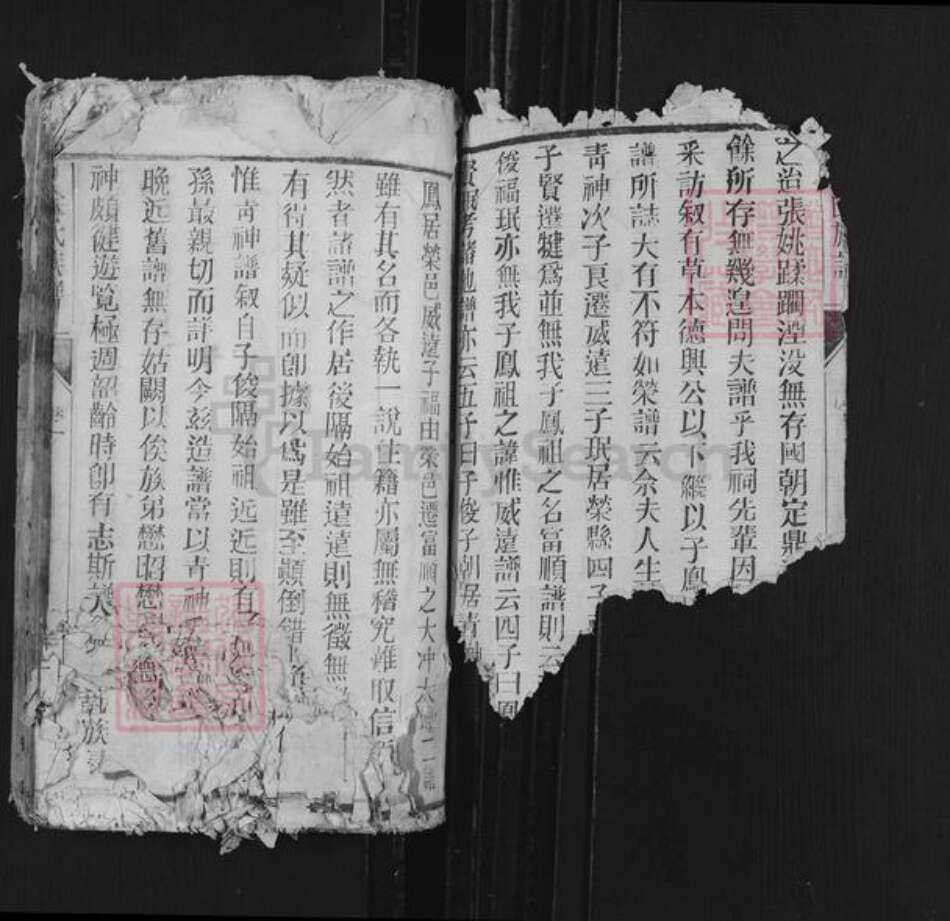 之治張姚蹂躙湮没無存國朝定鼎
餘所存無幾遑問夫譜乎我祠先輩因
采訪叙有草本德興公以下纘以子鳳
譜所誌大有不符如榮譜云佘夫人生
青神次子良遷威遠三子珉居榮縣四子
子賢遷犍爲並無我子鳳祖之名富順譜則云
俊福珉亦無我子鳳祖之諱惟威遠譜云四子曰鳳
賢珉考諸他譜亦云五子曰子俊子朝居青神
鳳居榮邑威遠子福由榮邑遷富順之大冲大二譜
雖有其名而各執一說世籍亦屬無稽究難取信
然者諸譜之作居後隔始祖遠遠則無徵無
有得其疑似而卽據以爲是雖至顚倒錯
惟青神譜叙自子俊隔始祖近近則有
孫最親切而詳明今茲造譜當以青神
晚近舊譜無存姑闕以俟族弟懋昭懋德
神頗健遊覽極週韶齡時卽有志斯族
氏族譜
FamilySearch